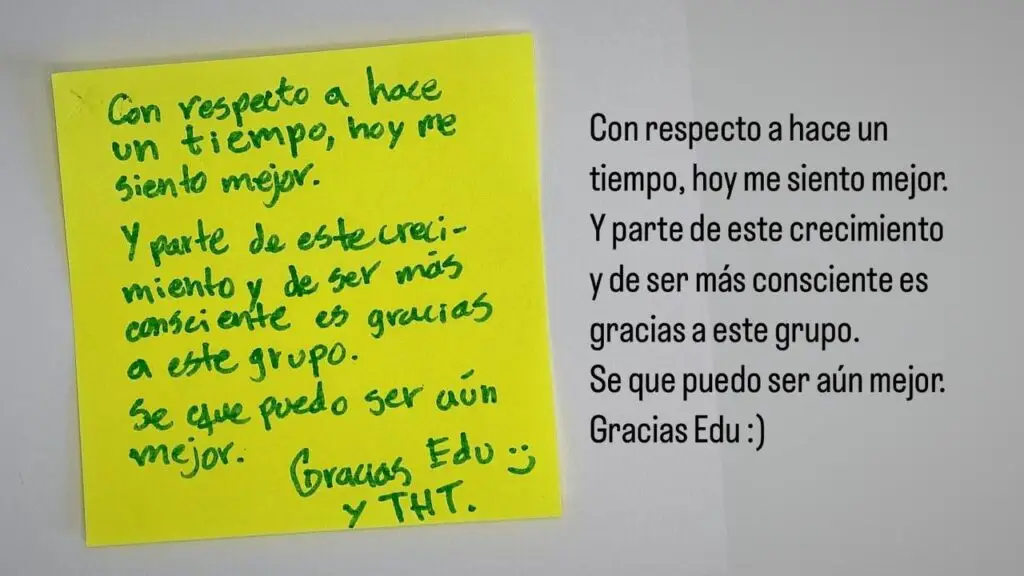 Con respecto a hace
un tiempo, hoy me
siento mejor.
Y parte de este creci-
miento y de ser más
consciente es gracias
a este grupo.
Se que puedo ser aún
mejor.
Gracias Edu :)
y THT.
Con respecto a hace un
tiempo, hoy me siento mejor.
Y parte de este crecimiento
y de ser más consciente es
gracias a este grupo.
Se que puedo ser aún mejor.
Gracias Edu :)